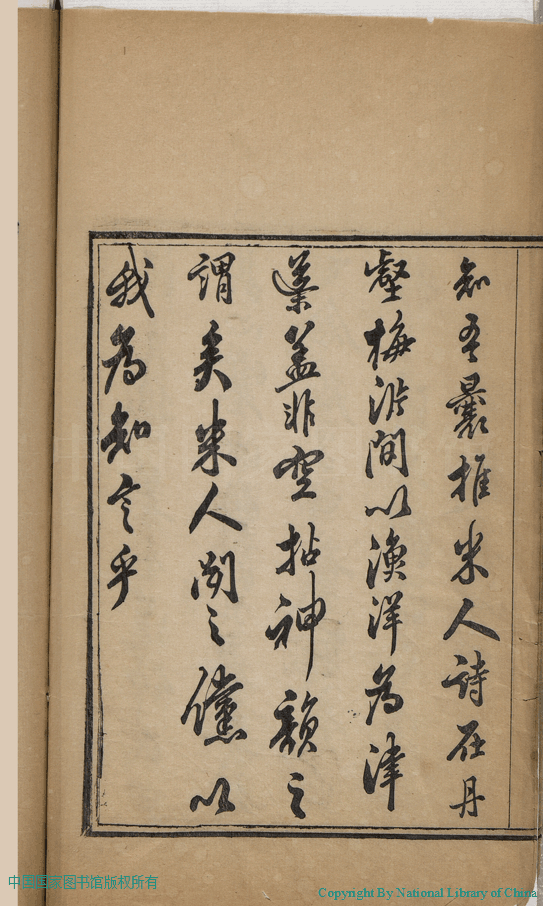 知吾曩推米人詩在丹
壑梅澁間以漁洋為津
筏蓋非空拈神韻之
謂矣米人閱之儻以
我為知言乎
中国国家图书馆版权所有
Copyright By National Library of China